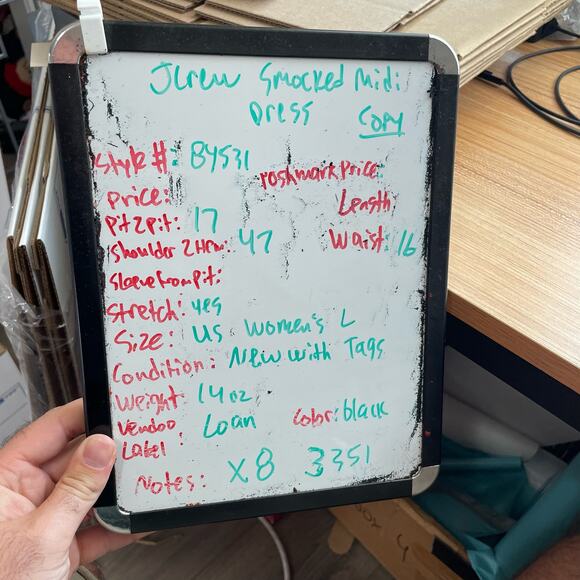 Jcrew Smocked Midi
Dress
Copy
Style #: BY531
Poshmark Price:
price:
Length
pit2pit: 17
Shoulder 2 Hem: 47
Waist: 16
Sleeve from Pit:
Stretch: yes
Size: US Women's L
Condition: New with Tags
Weight 14oz
Vendoo Loan
Color: black
Label
Notes: x8 3351